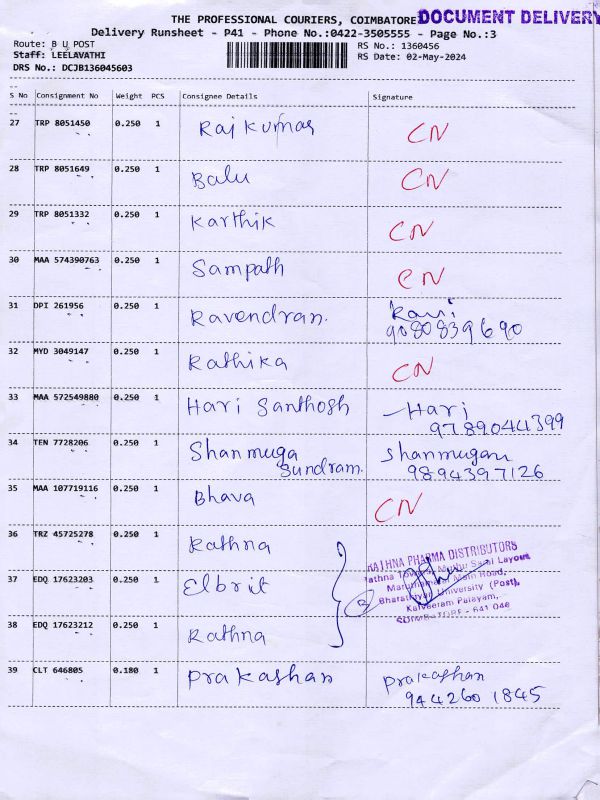 THE PROFESSIONAL COURIERS, COIMBATORE DOCUMENT DELIVERY
Delivery Runsheet - P41 - Phone No.:0422-3505555 - Page No.:3
Route: B U POST
RS No.: 1360456
Staff: LEELAVATHI
RS Date: 02-May-2024
DRS No.: DCJB136045603
S No Consignment No Weight PCS Consignee Details Signature
27 TRP 8051450 0.250 1 Rajkumar CN
28 TRP 8051649 0.250 1 Balu CN
29 TRP 8051332 0.250 1 Karthik CN
30 MAA 574390763 0.250 1 Sampath CN
31 DPI 261956 0.250 1 Ravendran. Ravi
9080839690
32 MYD 3049147 0.250 1 Rathika CN
33 MAA 572549880 0.250 1 Hari Santhosh Hari
9789044399
34 TEN 7728206 0.250 1 Shanmuga Shanmugam
Sundram. 9894397126
35 MAA 107719116 0.250 1 Bhava CN
36 TRZ 45725278 0.250 1 Rathna
RATHNA PHARMA DISTRIBUTORS
37 EDQ 17623203 0.250 1 Elbrit
Main Road,
Bharathiyar University (Post),
Kalveeram Palayam,
COIMBATORE - 641 046
38 EDQ 17623212 0.250 1 Rathna
39 CLT 646805 0.180 1 Prakashan Prakashan
944260 1845